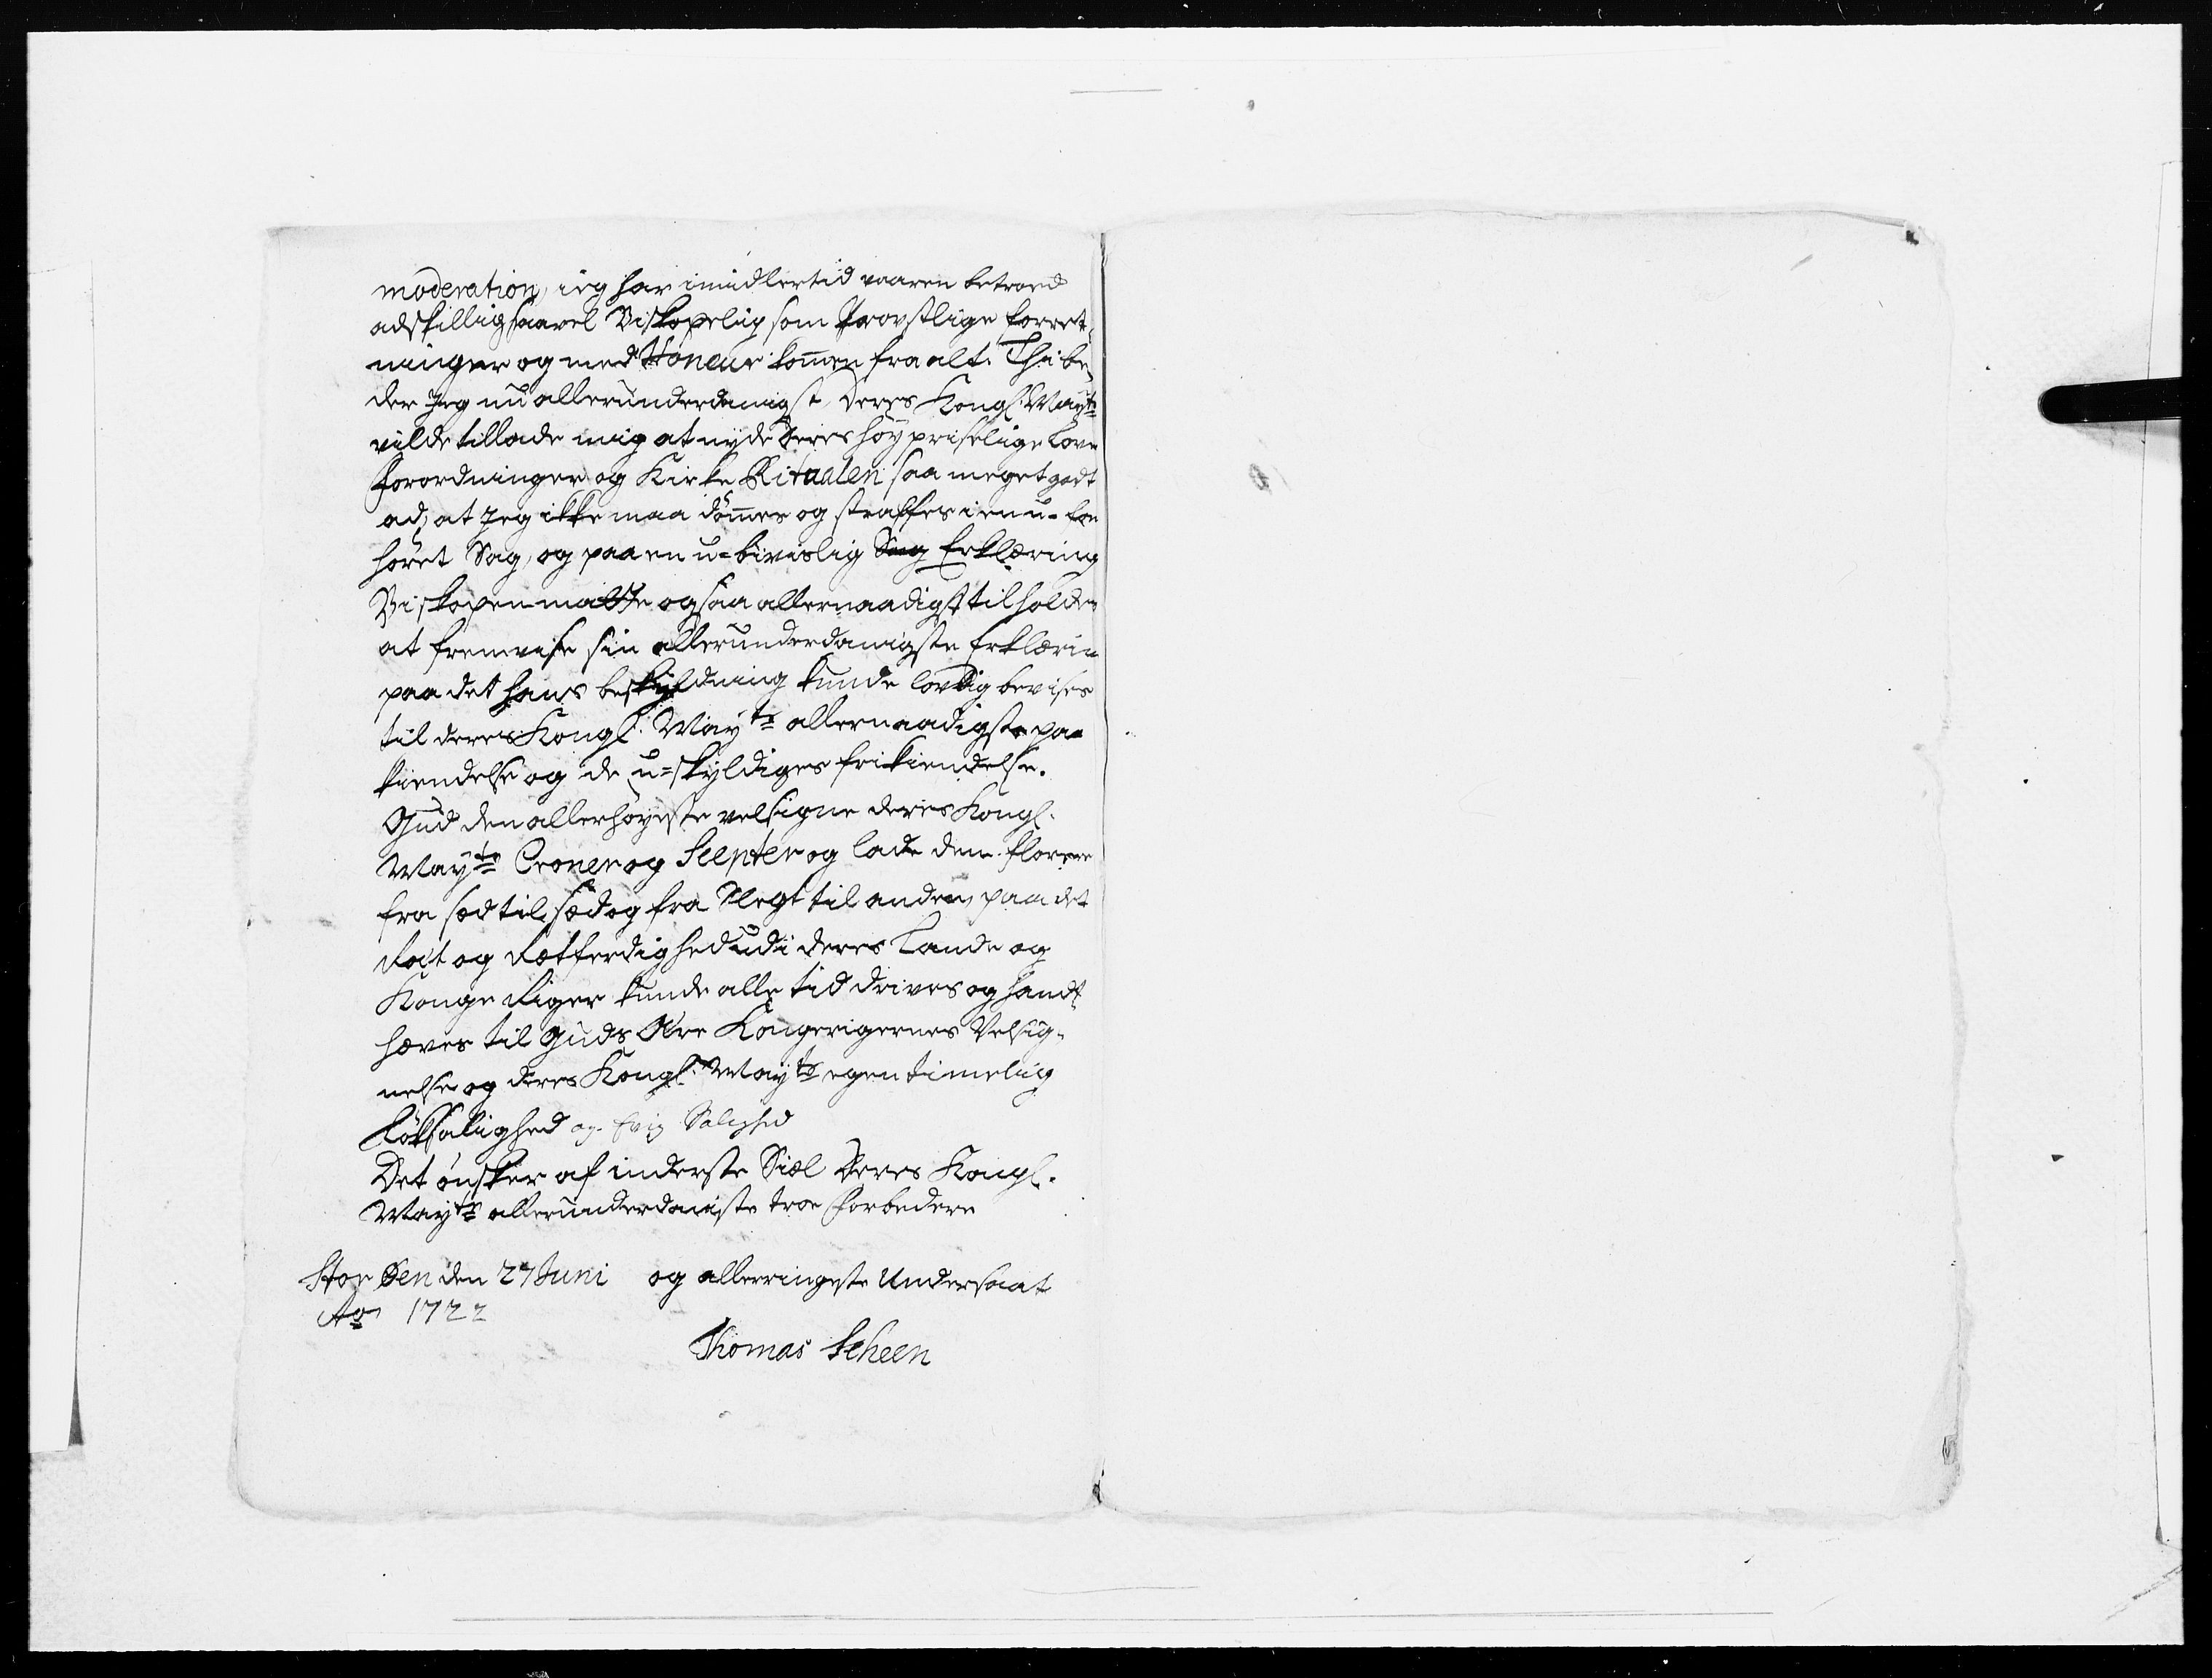 moderation, ieg har imidlertid vaaren betroed
adskillig saavel Biskopelig som Provstlige forret¬
ninger og med Honeur komen fra alt. Thi be¬
der Jeg nu allerunderdanigst Deres Kongl. Mayts
vilde tillade mig at nyde Deres høypriselige Love
Forordninger og Kirke Ritualen saa meget godt
ad, at Jeg ikke maa dømes og straffes i en u-for
høret Sag, og paa en u-bivislig Sag Erklæring
Biskopen maatte ogsaa allernaadigst tilholdes
at fremvise sin allerunderdanigste Erklæring
paa det hans beskyldning kunde lovlig bevises
til deres Kongl. Mayts allernaadigste paa
kiendelse og de u-skyldiges frikiendelse.
Gud den allerhøyeste velsigne deres Kongl.
Mayts Croner og Scepter og lade dem florere
fra sæd til sæd og fra Slegt til anden, paa det
Ræt og Rætferdighed udi deres Lande og
Konge Riger kunde alle tid drives og handt
hæves til Guds Ære Kongerigernes Velsig¬
nelse og deres Kongl. Mayts egen timelig
Løksalighed og Evig Salighed
Det ønsker af inderste Siæl Deres Kongl.
Mayts allerunderdanigste troe forbedere
Stor Øen den 27 Juni og allerringeste Undersaat
Ao 1722
Thomas Scheen